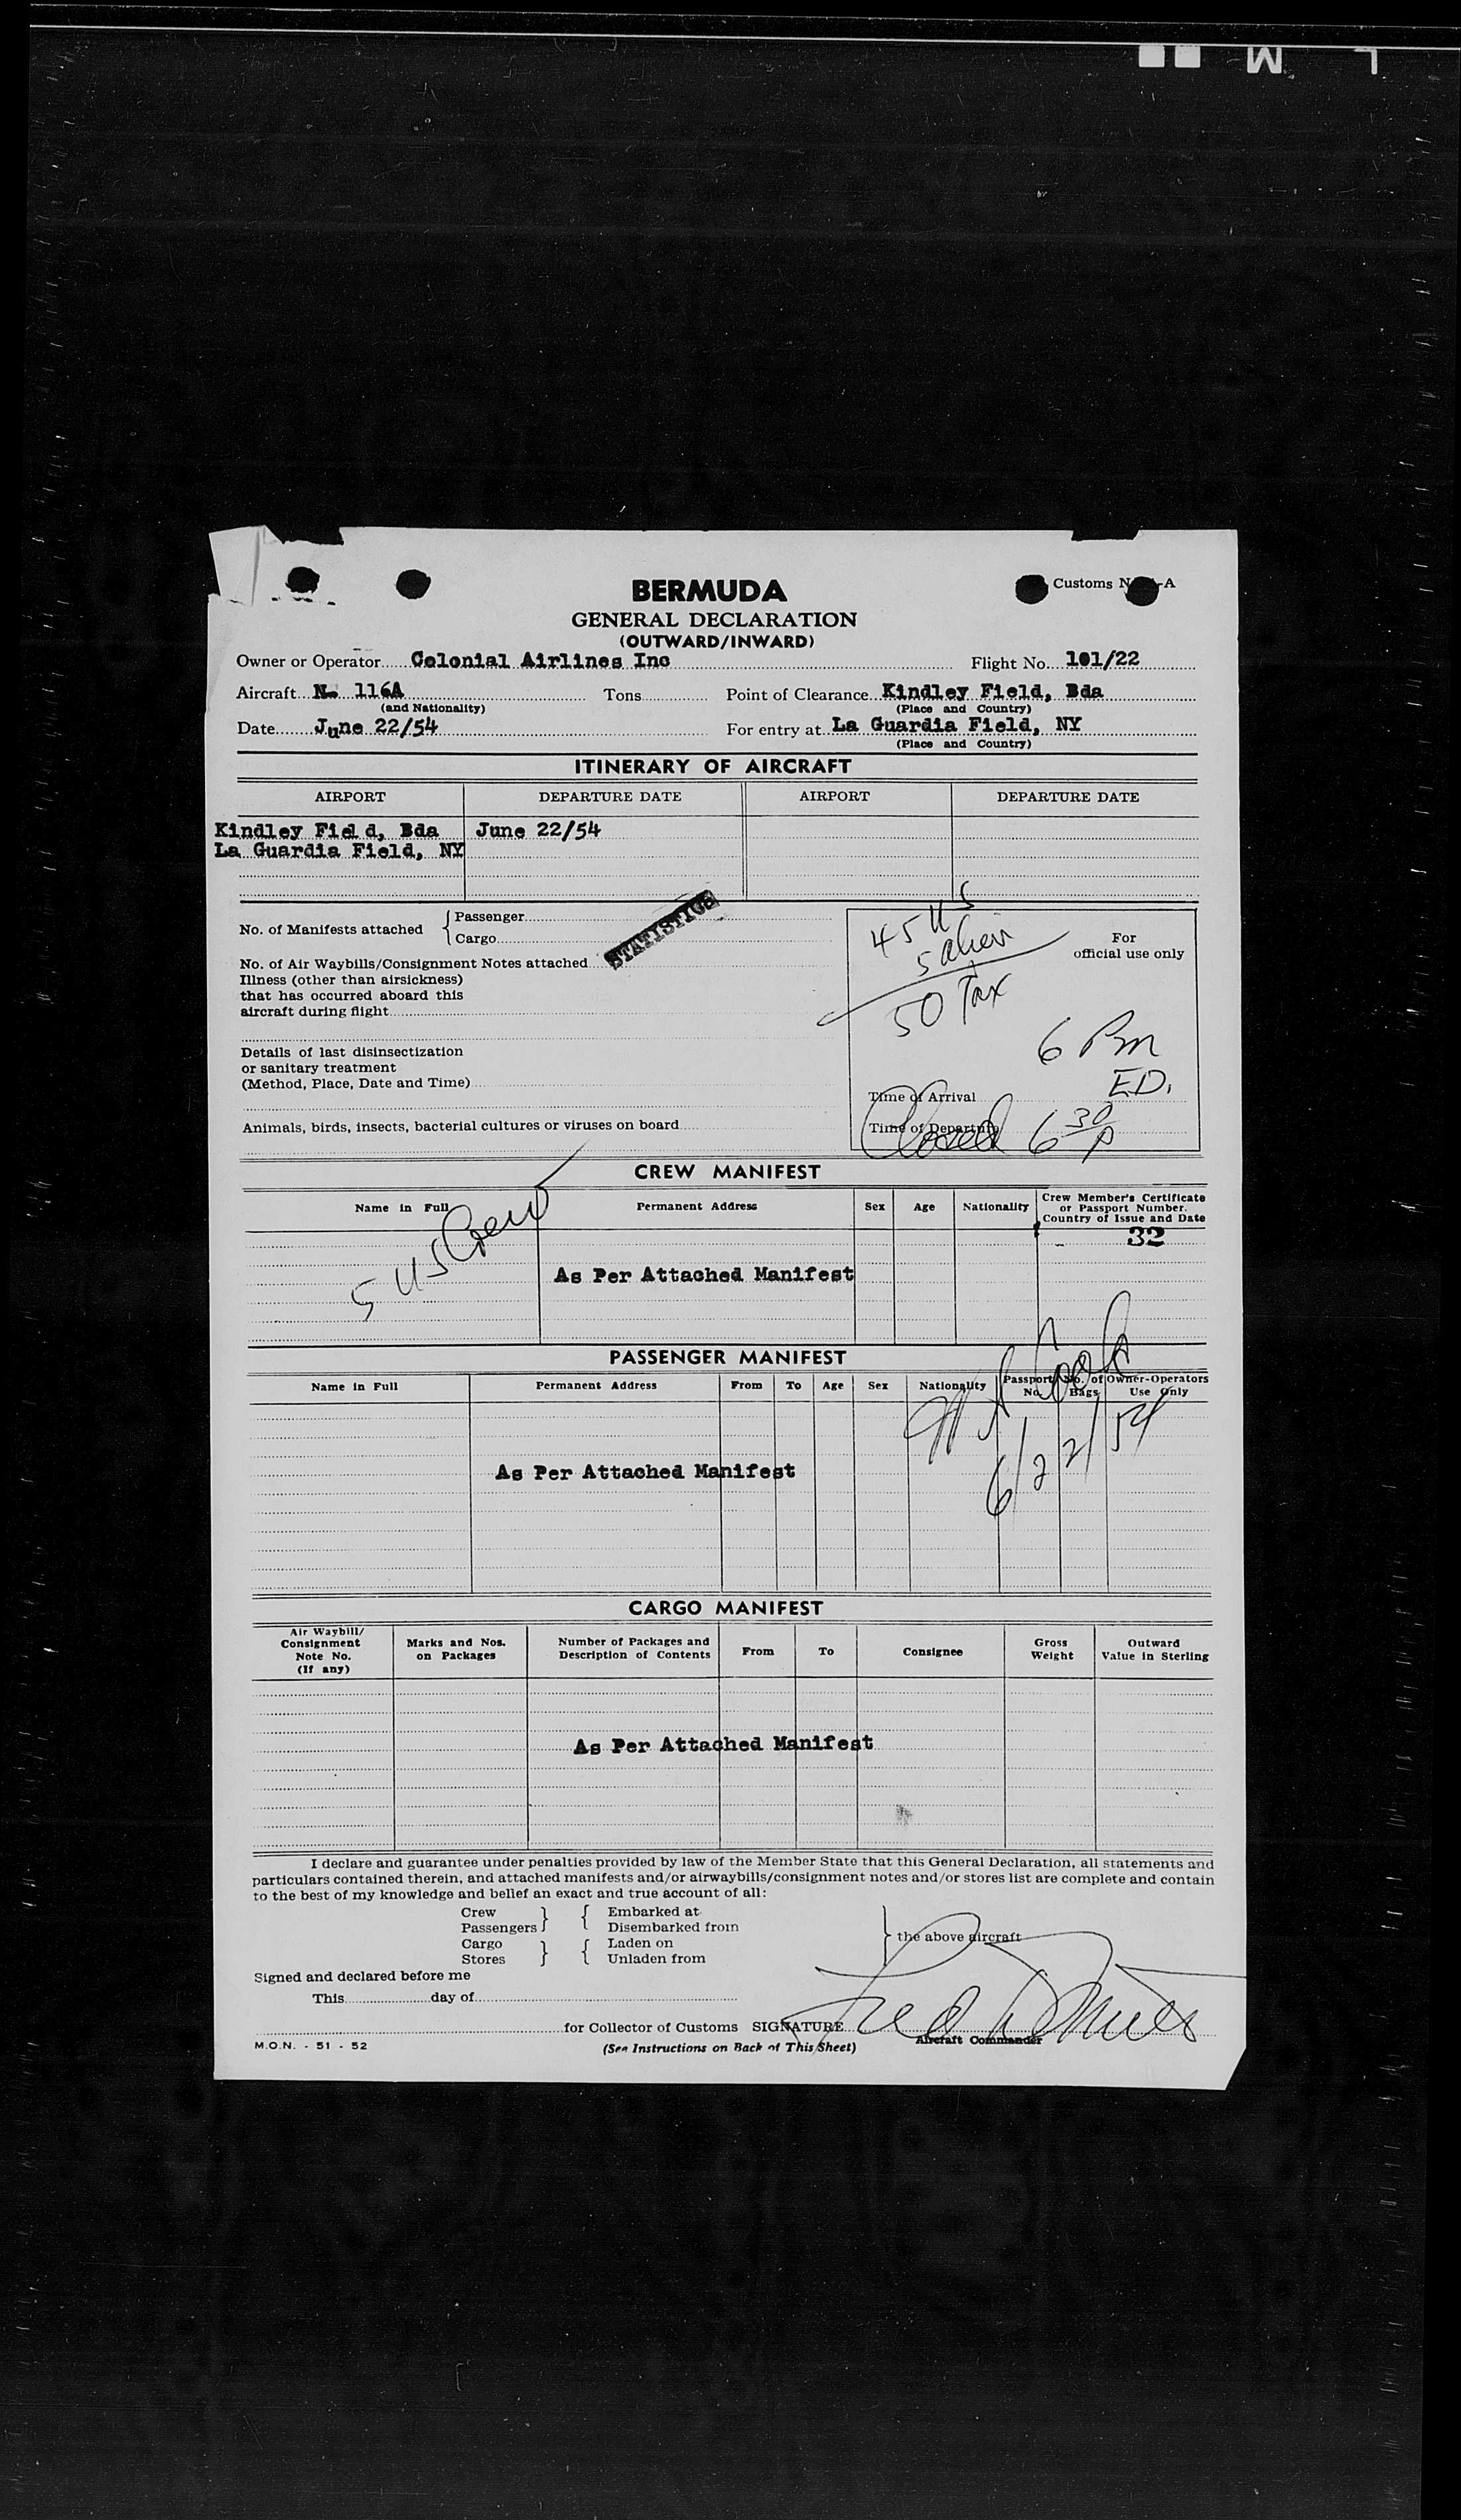 L M
Customs N -A
BERMUDA
GENERAL DECLARATION
(OUTWARD/INWARD)
Owner or Operator Colonial Airlines Inc Flight No. 101/22
Aircraft N. 116A Tons Point of Clearance Kindley Field, Bda
(and Nationality) (Place and Country)
Date June 22/54 For entry at La Guardia Field, NY
(Place and Country)
ITINERARY OF AIRCRAFT
AIRPORT DEPARTURE DATE AIRPORT DEPARTURE DATE
Kindley Field, Bda June 22/54
La Guardia Field, NY
No. of Manifests attached { Passenger
Cargo
STATISTICS
No. of Air Waybills/Consignment Notes attached
Illness (other than airsickness)
that has occurred aboard this
aircraft during flight
Details of last disinsectization
or sanitary treatment
(Method, Place, Date and Time)
Animals, birds, insects, bacterial cultures or viruses on board
45 US
5 alien
50 Tax
For
official use only
6 Pm
E.D.
Time of Arrival
Time of Departure
Closed 6 30 p
CREW MANIFEST
Name in Full Permanent Address Sex Age Nationality Crew Member's Certificate
or Passport Number.
Country of Issue and Date
32
5 US Crew
As Per Attached Manifest
PASSENGER MANIFEST
Name in Full Permanent Address From To Age Sex Nationality Passport No. No. of Bags Owner-Operators Use Only
6/22/54
As Per Attached Manifest
CARGO MANIFEST
Air Waybill/
Consignment
Note No.
(If any) Marks and Nos.
on Packages Number of Packages and
Description of Contents From To Consignee Gross
Weight Outward
Value in Sterling
As Per Attached Manifest
I declare and guarantee under penalties provided by law of the Member State that this General Declaration, all statements and
particulars contained therein, and attached manifests and/or airwaybills/consignment notes and/or stores list are complete and contain
to the best of my knowledge and belief an exact and true account of all:
Crew } { Embarked at
Passengers } { Disembarked from
Cargo } { Laden on
Stores } { Unladen from
} the above aircraft
Signed and declared before me
This day of
for Collector of Customs SIGNATURE
Aircraft Commander
M.O.N. - 51 - 52 (See Instructions on Back of This Sheet)